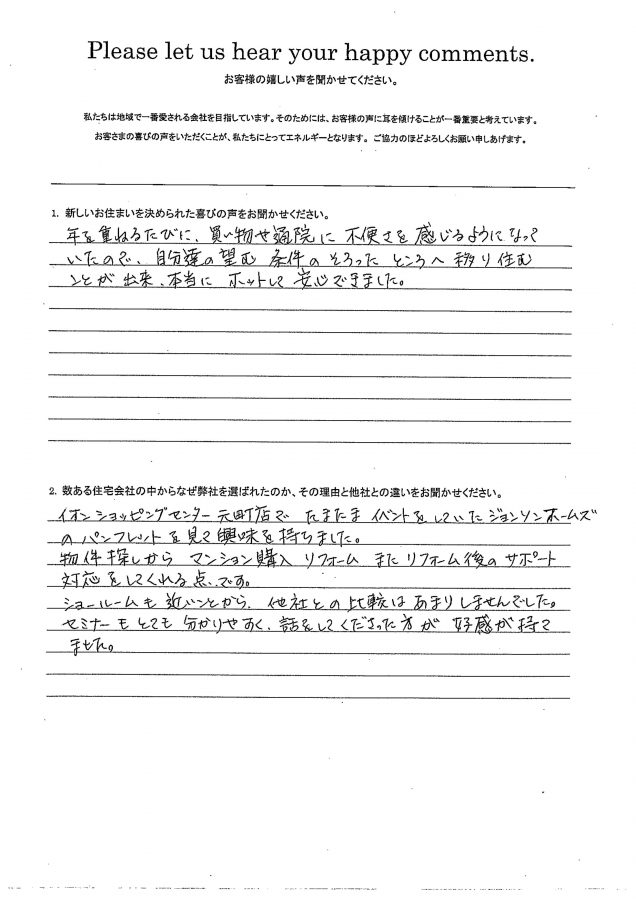 Please let us hear your happy comments.
お客様の嬉しい声を聞かせてください。
私たちは地域で一番愛される会社を目指しています。そのためには、お客様の声に耳を傾けることが一番重要と考えています。
お客さまの喜びの声をいただくことが、私たちにとってエネルギーとなります。ご協力のほどよろしくお願い申しあげます。
1. 新しいお住まいを決められた喜びの声をお聞かせください。
年を重ねるたびに、買い物や通院に不便さを感じるようになって
いたので、自分達の望む条件のそろったところへ移り住む
ことが出来、本当にホットして安心できました。
2. 数ある住宅会社の中からなぜ弊社を選ばれたのか、その理由と他社との違いをお聞かせください。
イオンショッピングセンター元町店でたまたまイベントをしていたジョンソンホームズ
のパンフレットを見て興味を持ちました。
物件探しからマンション購入 リフォーム またリフォーム後のサポート
対応をしてくれる点、です。
ショールームも近いことから、他社との比較はあまりしませんでした。
セミナーもとても分かりやすく、話をしてくださった方が好感が持て
ました。